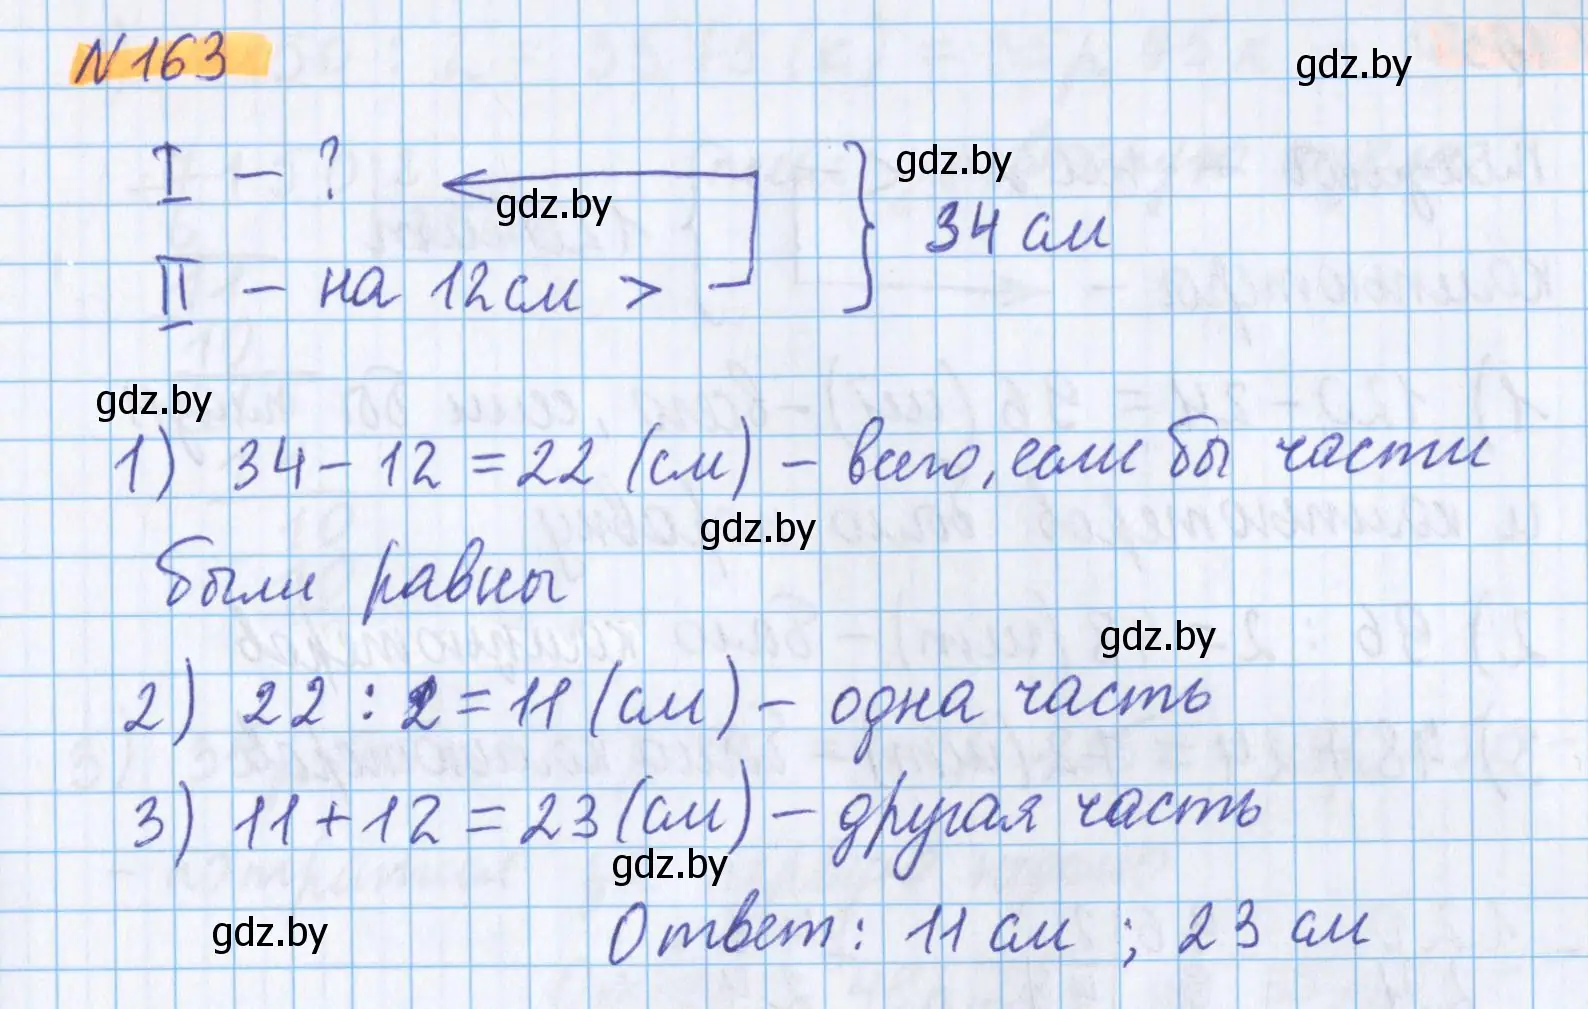 N 163
gdz.by
I – ?
gdz.by
gdz.by
34 см
II – на 12 см > –
gdz.by
1) 34 – 12 = 22 (см) – всего, если бы части
gdz.by
были равны
gdz.by
2) 22 : 2 = 11 (см) – одна часть
3) 11 + 12 = 23 (см) – другая часть
gdz.by
gdz.by
Ответ: 11 см ; 23 см